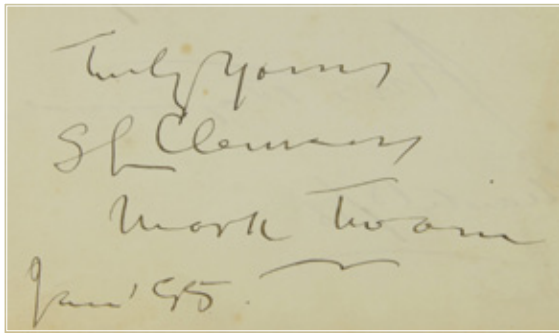 Truly Yours
SL Clemens
Mark Twain
Jan' 85.